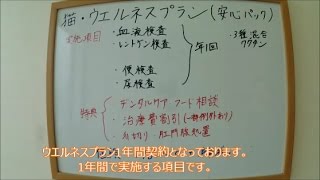 猫・ウエルネスプラン(安心パック)
実施項目
・血液検査
・レントゲン検査
年1回
・3種混合
ワクチン
・便検査
・尿検査
特典
・デンタルケア フード相談
・治療費割引(一部例外あり)
・爪切り・肛門腺処置
ウエルネスプラン1年間契約となっております。
1年間で実施する項目です。